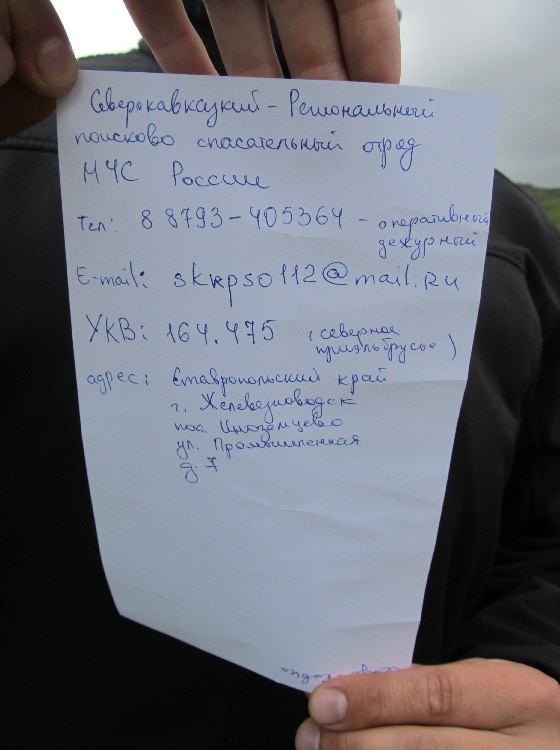 Северокавкаский - Региональный
поисково спасательный отряд
МЧС России
Тел: 8 8793-405364 - оперативный
дежурный
E-mail: skrpso112@mail.Ru
УКВ: 164.475 (северное
приэльбрусье)
адрес: Ставропольский край
г. Железноводск
пос. Иноземцево
ул. Промышленная
д. 7